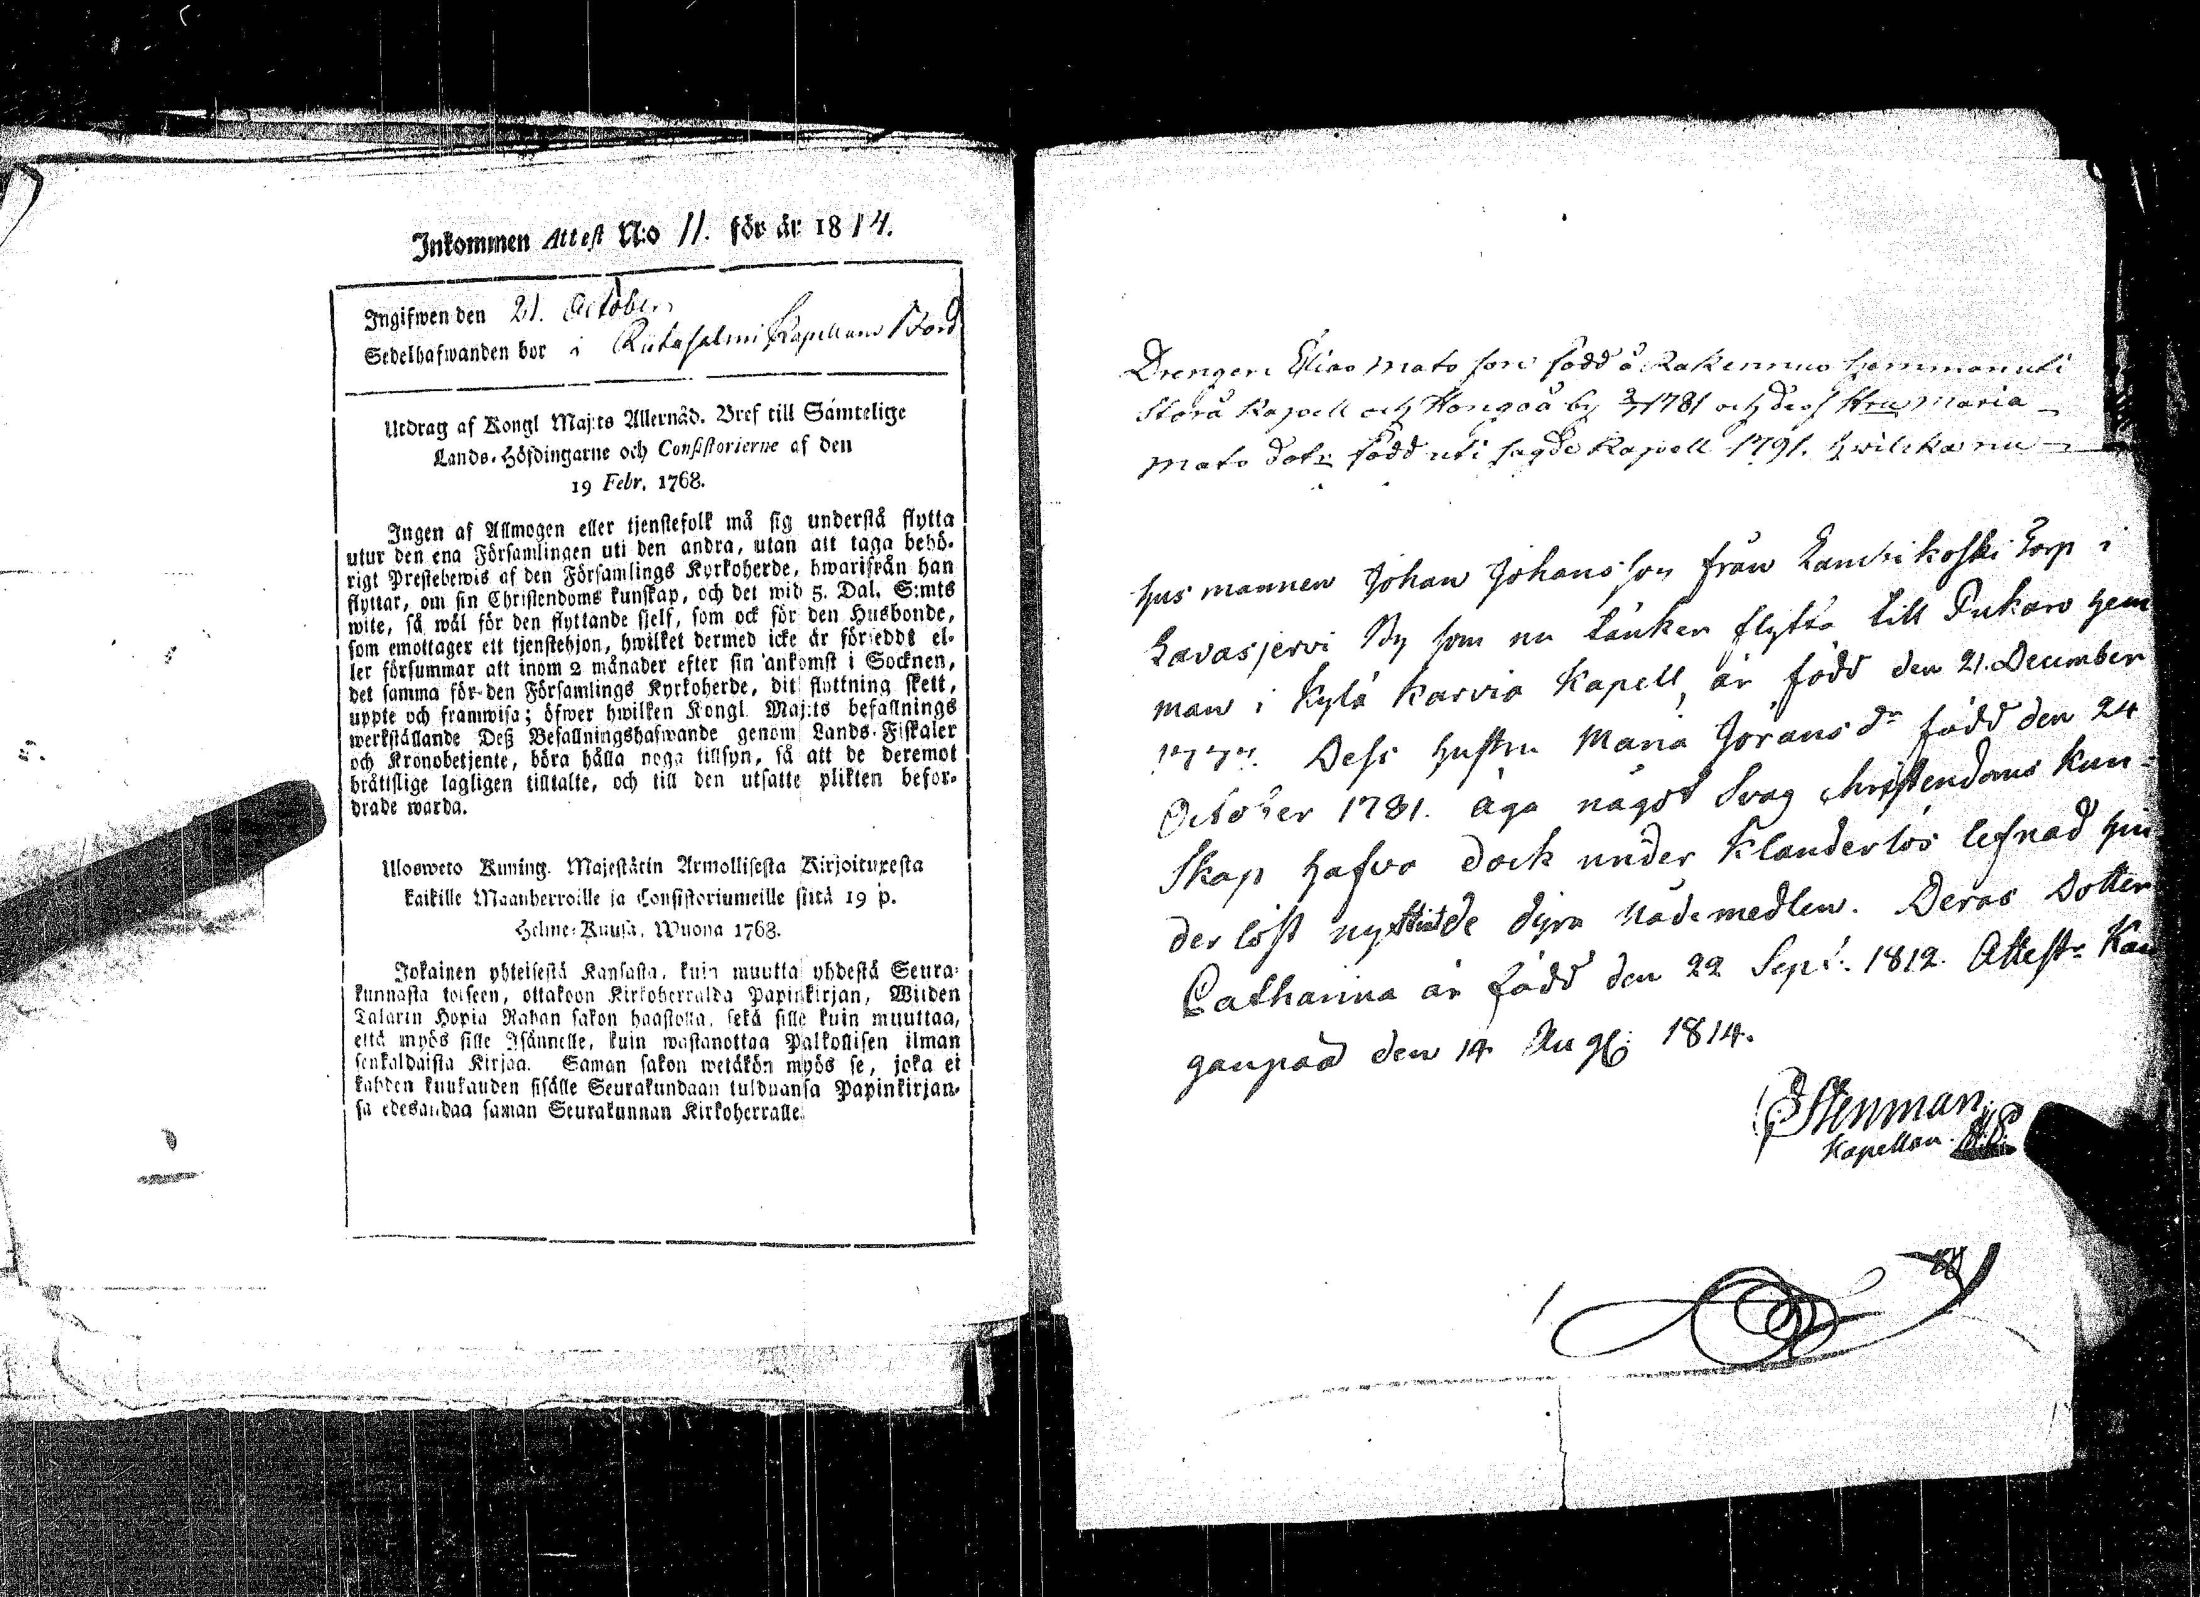 Inkommen Attest N:o 11. för år 1814.
Ingifwen den 21. October
Sedelhafwanden bor i Kapellans Bord
Utdrag af Kongl Maj:ts Allernåd. Bref till Samtelige
Lands-Höfdingarne och Consistorierne af den
19 Febr. 1768.
Ingen af Allmogen eller tjenstefolk må sig understå flytta
utur den ena Församlingen uti den andra, utan att taga behö-
rigt Prestebewis af den Församlings Kyrkoherde, hwarifrån han
flyttar, om sin Christendoms kunskap, och det wid 5. Dal. S:mts
wite, så wäl för den flyttande sjelf, som ock för den Husbonde,
som emottager ett tjenstehjon, hwilket dermed icke är försedde el-
ler försummar att inom 2 månader efter sin ankomst i Socknen,
det samma för den Församlings Kyrkoherde, dit flyttning skett,
uppte och framwisa; öfwer hwilken Kongl. Maj:ts befallnings
werkställande Deß Befallningshafwande genom Lands-Fiskaler
och Kronobetjente, böra hålla noga tillsyn, så att de deremot
bråtislige lagligen tilltalte, och till den utsatte plikten befor-
drade warda.
Ulosweto Kuning. Majestätin Armollisesta Kirjoituxesta
kaikille Maanherroille ja Consistoriumeille siitä 19 p.
Helme-Kuusa, Wuona 1768.
Jokainen yhteisestä Kansasta, kuin muutta yhdestä Seura-
kunnasta toiseen, ottakoon Kirkoherralda Papinkirjan, Wiiden
Talarin Hopia Rahan sakon haastolla, sekä sille kuin muuttaa,
että myös sille Isännelle, kuin wastanottaa Palkollisen ilman
senkaldaista Kirjaa. Saman sakon wetäkön myös se, joka ei
kahden kuukauden sisälle Seurakundaan tulduansa Papinkirjan-
sa edesandaa saman Seurakunnan Kirkoherralle.
Drengen Elias Mats son född å Rakennus hemman uti
Storå Kapell och Kongså by 2/7 1781 och dess Hru Maria
Mats dotr född uti sagde Kapell 1791. hwilka nu
Husmannen Johan Johansson från Lamikoski Torp i
Lavasjervi By som nu tänker flytta till Pukaro hem
man i Kylä Karvia Kapell, är född den 21. December
1777. Dess hustru Maria Jöransdr född den 24
October 1781. äga något Svag christendoms kun-
skap hafva dock under klanderlös lefnad hin
derlöst nyttiade dyra nådemedlen. Deras Dotter
Catharina är född den 22 Sept. 1812. Attestr Kan
ganpää den 14 Aug. 1814.
Stenman
Kapellan.